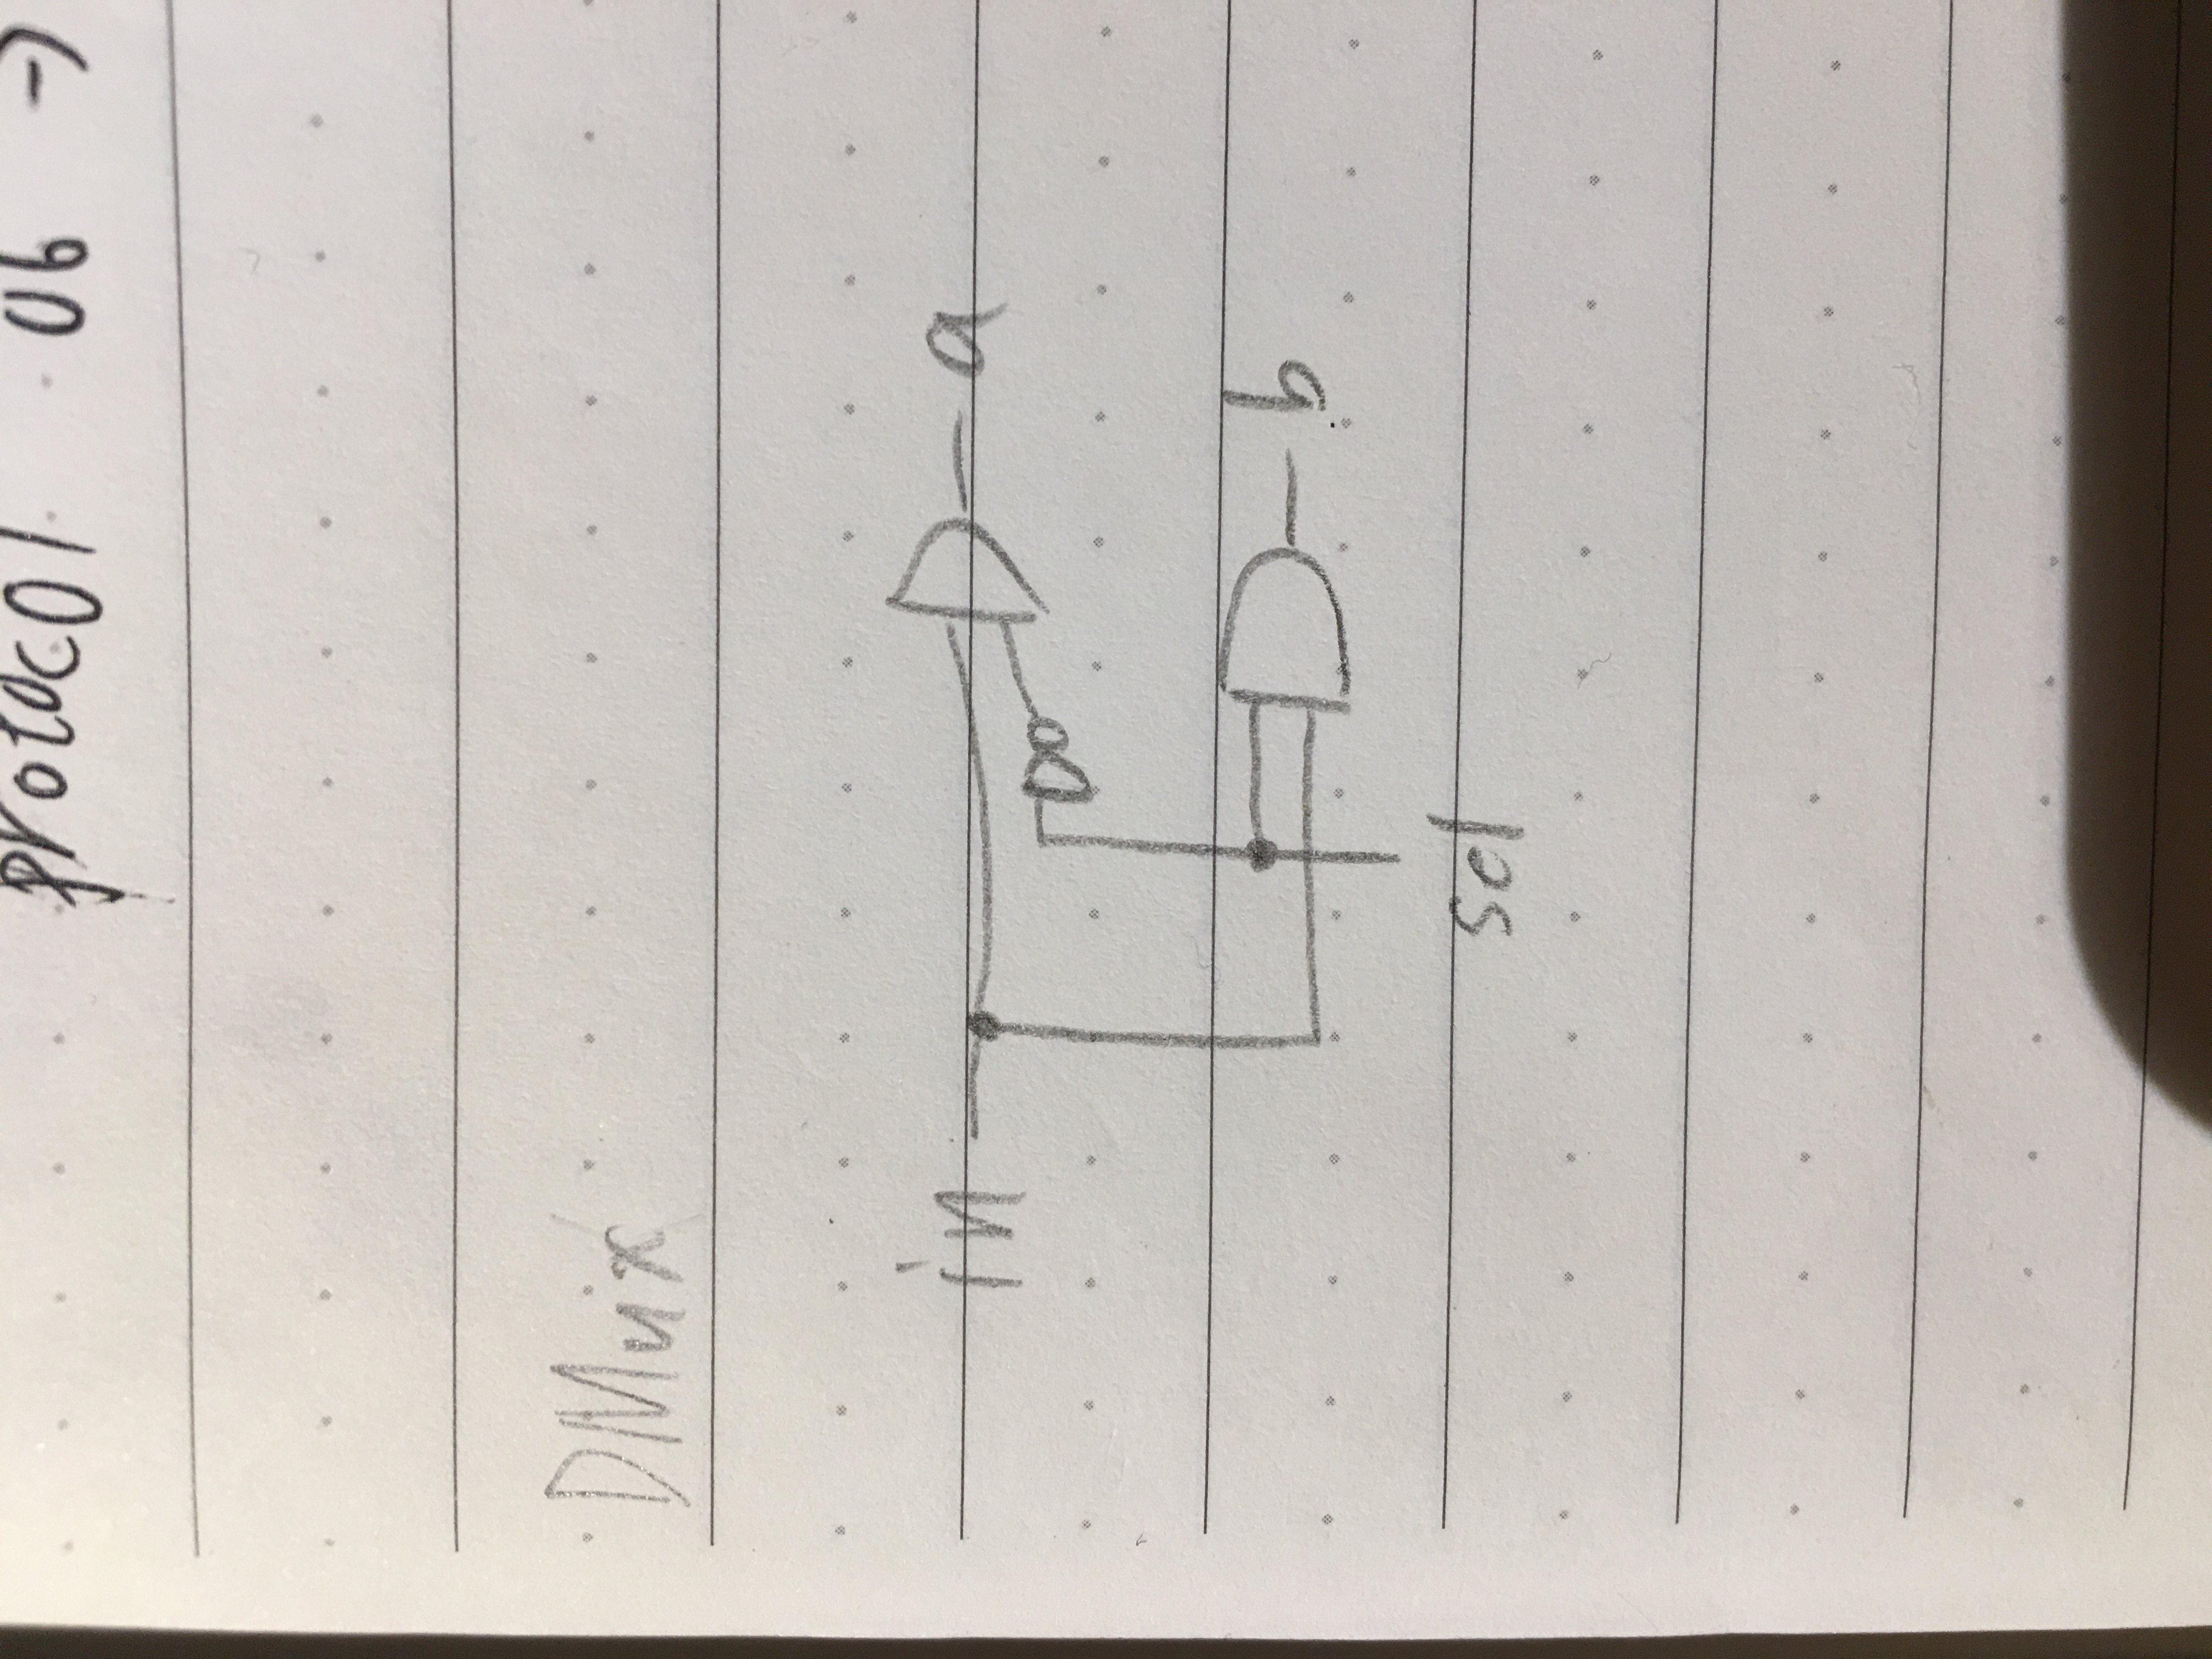 protocol 06 →
DMux
in a
b
sel